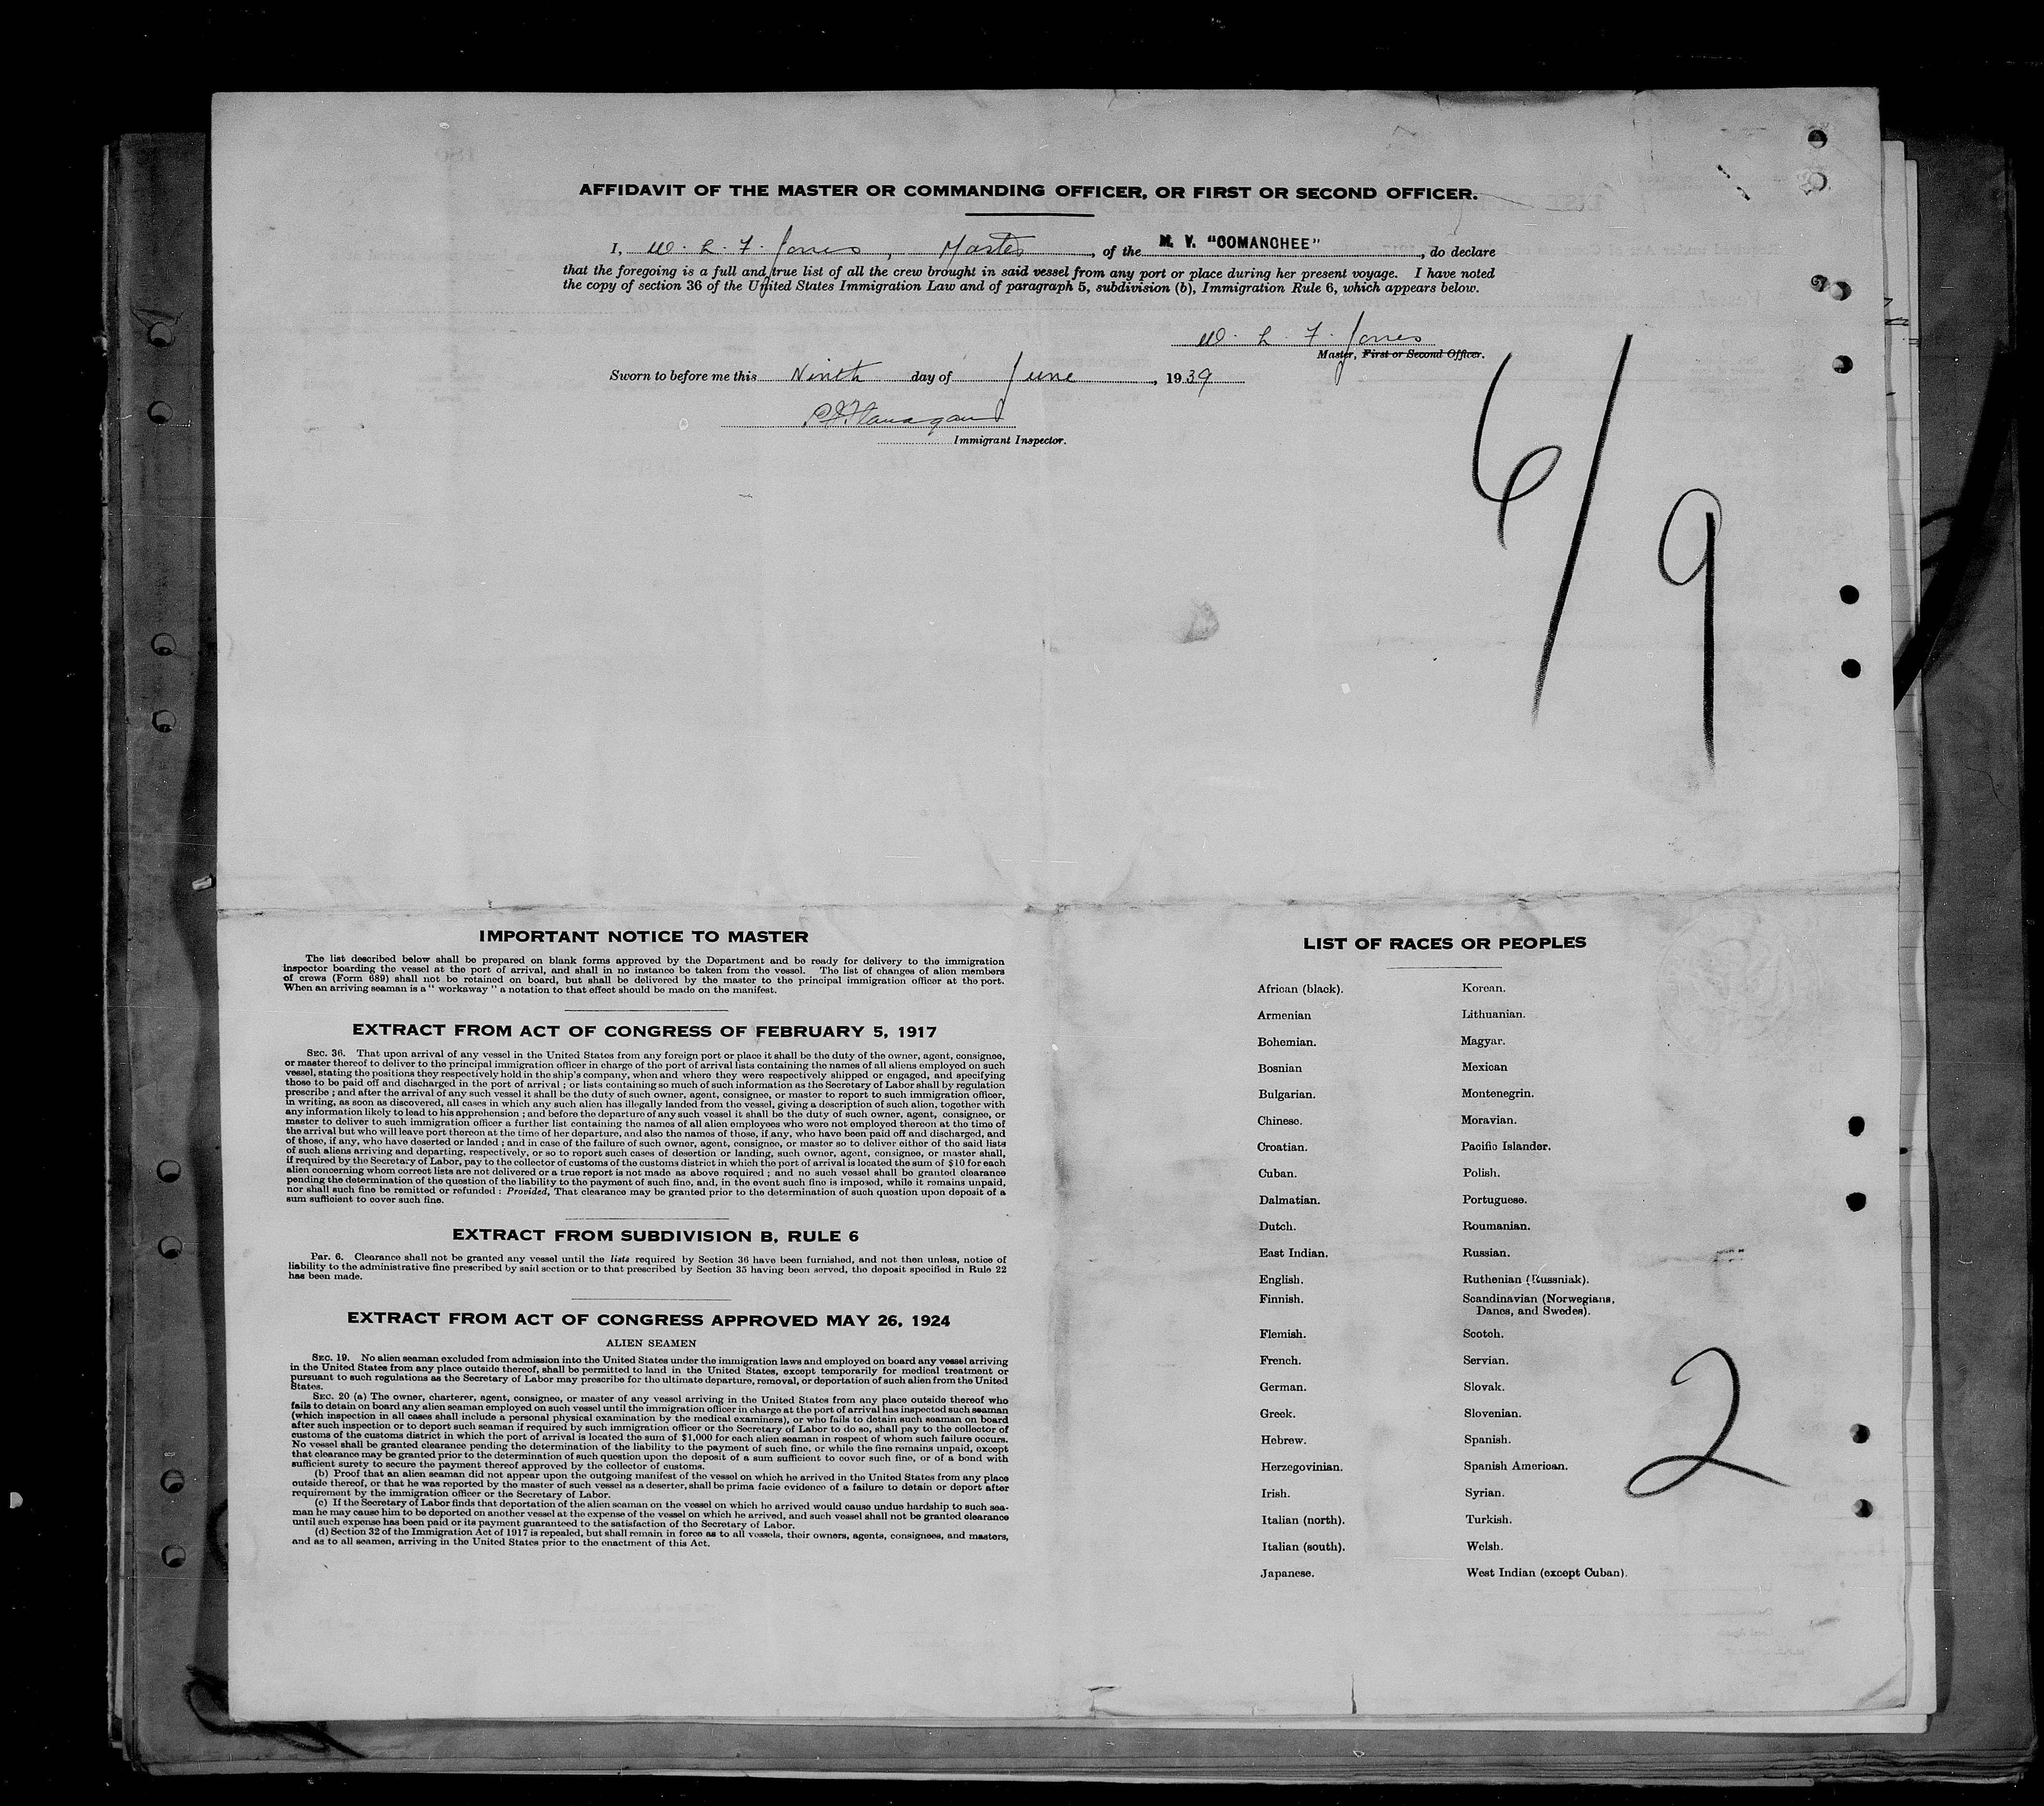 AFFIDAVIT OF THE MASTER OR COMMANDING OFFICER, OR FIRST OR SECOND OFFICER.
I, W. L. F. Jones, Master, of the M. V. "COMANCHEE", do declare
that the foregoing is a full and true list of all the crew brought in said vessel from any port or place during her present voyage. I have noted
the copy of section 36 of the United States Immigration Law and of paragraph 5, subdivision (b), Immigration Rule 6, which appears below.
W. L. F. Jones
Master, First or Second Officer.
Sworn to before me this Ninth day of June, 1939
Flanagan
Immigrant Inspector.
6/9
IMPORTANT NOTICE TO MASTER
The list described below shall be prepared on blank forms approved by the Department and be ready for delivery to the immigration
inspector boarding the vessel at the port of arrival, and shall in no instance be taken from the vessel. The list of changes of alien members
of crews (Form 689) shall not be retained on board, but shall be delivered by the master to the principal immigration officer at the port.
When an arriving seaman is a "workaway" a notation to that effect should be made on the manifest.
EXTRACT FROM ACT OF CONGRESS OF FEBRUARY 5, 1917
SEC. 36. That upon arrival of any vessel in the United States from any foreign port or place it shall be the duty of the owner, agent, consignee,
or master thereof to deliver to the principal immigration officer in charge of the port of arrival lists containing the names of all aliens employed on such
vessel, stating the positions they respectively hold in the ship's company, when and where they were respectively shipped or engaged, and specifying
those to be paid off and discharged in the port of arrival; or lists containing so much of such information as the Secretary of Labor shall by regulation
prescribe; and after the arrival of any such vessel it shall be the duty of such owner, agent, consignee, or master to report to such immigration officer,
in writing, as soon as discovered, all cases in which any such alien has illegally landed from the vessel, giving a description of such alien, together with
any information likely to lead to his apprehension; and before the departure of any such vessel it shall be the duty of such owner, agent, consignee, or
master to deliver to such immigration officer a further list containing the names of all alien employees who were not employed thereon at the time of
the arrival but who will leave port thereon at the time of her departure, and also the names of those, if any, who have been paid off and discharged, and
of those, if any, who have deserted or landed; and in case of the failure of such owner, agent, consignee, or master so to deliver either of the said lists
of such aliens arriving and departing, respectively, or so to report such cases of desertion or landing, such owner, agent, consignee, or master shall,
if required by the Secretary of Labor, pay to the collector of customs of the customs district in which the port of arrival is located the sum of $10 for each
alien concerning whom correct lists are not delivered or a true report is not made as above required; and no such vessel shall be granted clearance
pending the determination of the question of the liability to the payment of such fine, and, in the event such fine is imposed, while it remains unpaid,
nor shall such fine be remitted or refunded: Provided, That clearance may be granted prior to the determination of such question upon deposit of a
sum sufficient to cover such fine.
EXTRACT FROM SUBDIVISION B, RULE 6
Par. 6. Clearance shall not be granted any vessel until the lists required by Section 36 have been furnished, and not then unless, notice of
liability to the administrative fine prescribed by said section or to that prescribed by Section 35 having been served, the deposit specified in Rule 22
has been made.
EXTRACT FROM ACT OF CONGRESS APPROVED MAY 26, 1924
ALIEN SEAMEN
SEC. 19. No alien seaman excluded from admission into the United States under the immigration laws and employed on board any vessel arriving
in the United States from any place outside thereof, shall be permitted to land in the United States, except temporarily for medical treatment or
pursuant to such regulations as the Secretary of Labor may prescribe for the ultimate departure, removal, or deportation of such alien from the United
States.
SEC. 20 (a) The owner, charterer, agent, consignee, or master of any vessel arriving in the United States from any place outside thereof who
fails to detain on board any alien seaman employed on such vessel until the immigration officer in charge at the port of arrival has inspected such seaman
(which inspection in all cases shall include a personal physical examination by the medical examiners), or who fails to detain such seaman on board
after such inspection or to deport such seaman if required by such immigration officer or the Secretary of Labor to do so, shall pay to the collector of
customs of the customs district in which the port of arrival is located the sum of $1,000 for each alien seaman in respect of whom such failure occurs.
No vessel shall be granted clearance pending the determination of the liability to the payment of such fine, or while the fine remains unpaid, except
that clearance may be granted prior to the determination of such question upon the deposit of a sum sufficient to cover such fine, or of a bond with
sufficient surety to secure the payment thereof approved by the collector of customs.
(b) Proof that an alien seaman did not appear upon the outgoing manifest of the vessel on which he arrived in the United States from any place
outside thereof, or that he was reported by the master of such vessel as a deserter, shall be prima facie evidence of a failure to detain or deport after
requirement by the immigration officer or the Secretary of Labor.
(c) If the Secretary of Labor finds that deportation of the alien seaman on the vessel on which he arrived would cause undue hardship to such sea-
man he may cause him to be deported on another vessel at the expense of the vessel on which he arrived, and such vessel shall not be granted clearance
until such expense has been paid or its payment guaranteed to the satisfaction of the Secretary of Labor.
(d) Section 32 of the Immigration Act of 1917 is repealed, but shall remain in force as to all vessels, their owners, agents, consignees, and masters,
and as to all seamen, arriving in the United States prior to the enactment of this Act.
LIST OF RACES OR PEOPLES
African (black).
Armenian
Bohemian.
Bosnian
Bulgarian.
Chinese.
Croatian.
Cuban.
Dalmatian.
Dutch.
East Indian.
English.
Finnish.
Flemish.
French.
German.
Greek.
Hebrew.
Herzegovinian.
Irish.
Italian (north).
Italian (south).
Japanese.
Korean.
Lithuanian.
Magyar.
Mexican
Montenegrin.
Moravian.
Pacific Islander.
Polish.
Portuguese.
Roumanian.
Russian.
Ruthenian (Russniak).
Scandinavian (Norwegians,
Danes, and Swedes).
Scotch.
Servian.
Slovak.
Slovenian.
Spanish.
Spanish American.
Syrian.
Turkish.
Welsh.
West Indian (except Cuban).
2